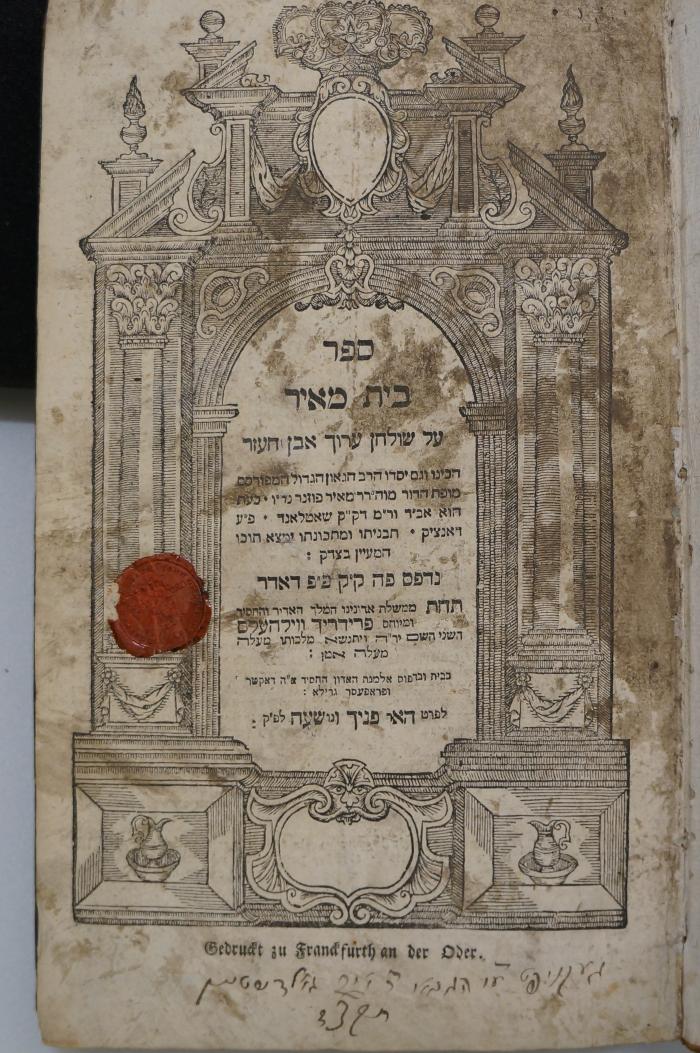 ספר
בית מאיר
על שולחן ערוך אבן העזר
הכינו וגם יסדו הרב הגאון הגדול המפורסם
מופת הדור מוה״רר מאיר פוזנר נר״ו • כעת
הוא אב״ד ור״מ דק״ק שאטלאנד • פ״ע
דאנציק • תבניתו ומתכונתו ימצא תוכו
המעיין בצדק :
נדפס פה ק״ק פ״פ דאדר
תחת ממשלת אדונינו המלך האדיר והחסיד
ומיוחס פרידריך ווילהעלם
השני השם יר״ה ויתנשא מלכותו מעלה
מעלה אמן :
בבית ובדפוס אלמנת האדון החסיד א״ה דאקטר
ופראפעסר גרילא :
לפרט האר פניך ונושעה לפ״ק :
Gedruckt zu Franckfurth an der Oder.
תקצד